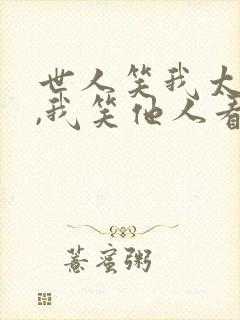 世人笑我太
,我笑他人看
薏蜜粥